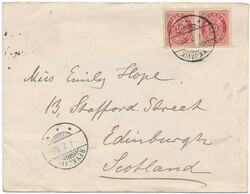 REYKJAVIK
Miss Emily Hope,
13, Stafford Street
Edinburgh
Scotland
REYKJAVIK